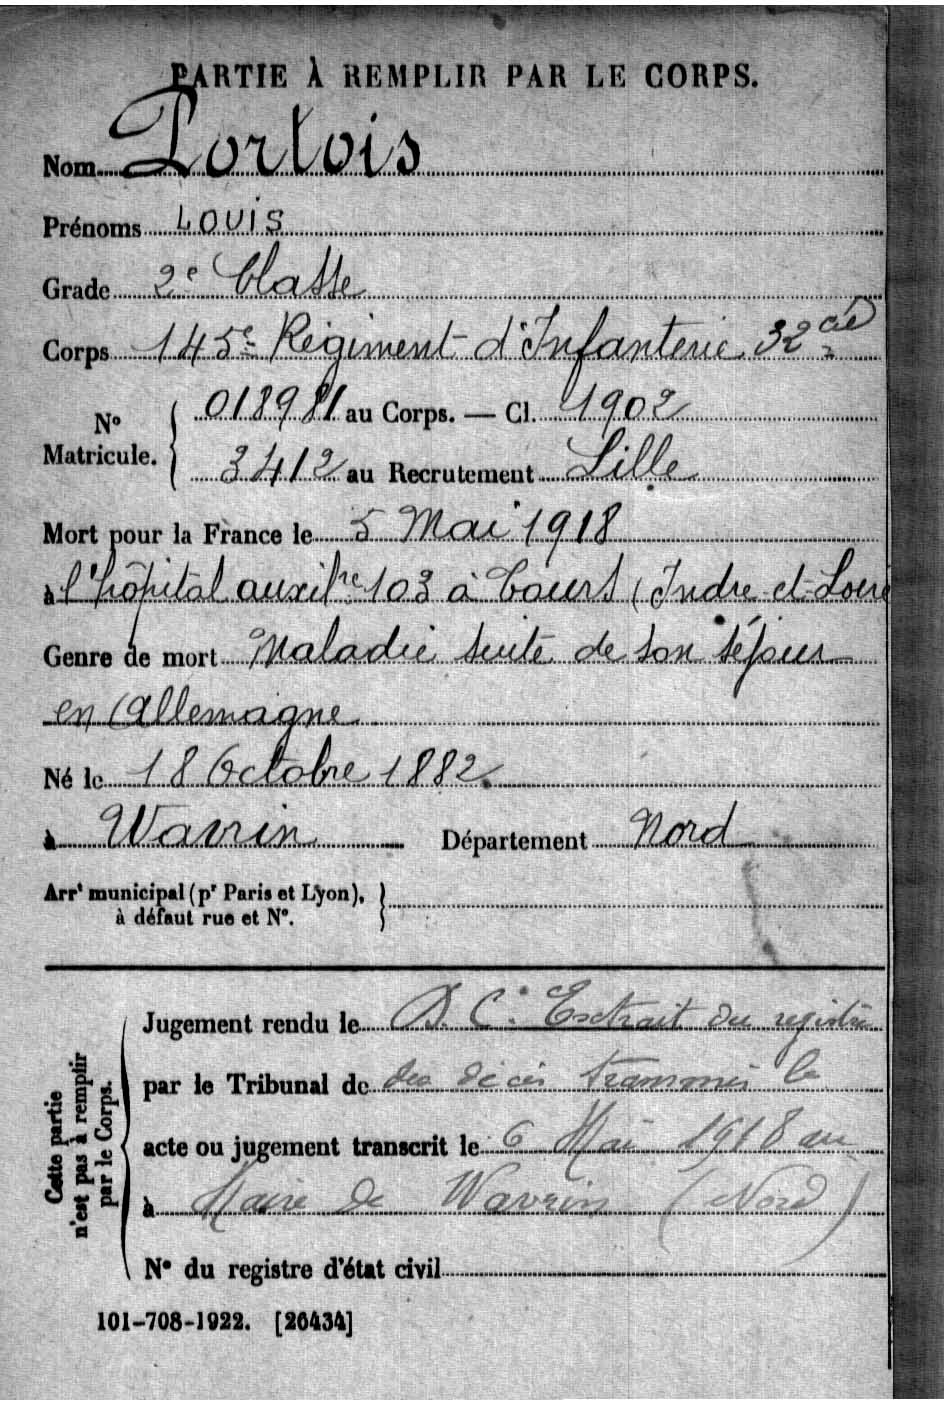 PARTIE À REMPLIR PAR LE CORPS.
Nom Portois
Prénoms LOUIS
Grade 2e Classe
Corps 145e Régiment d'Infanterie 32 cie
No Matricule. { 018981 au Corps. — Cl. 1902
3412 au Recrutement Lille
Mort pour la France le 5 Mai 1918
à l'hôpital auxilre 103 à Tours (Indre-et-Loire
Genre de mort Maladie suite de son séjour
en Allemagne
Né le 18 Octobre 1882
à Wavrin Département Nord
Arrt municipal (pr Paris et Lyon),
à défaut rue et No.
Cette partie
n'est pas à remplir
par le Corps.
Jugement rendu le D. C. Extrait du registre
par le Tribunal de des décès transmis le
acte ou jugement transcrit le 6 Mai 1918 au
à Maire de Wavrin (Nord)
No du registre d'état civil
101-708-1922. [26434]